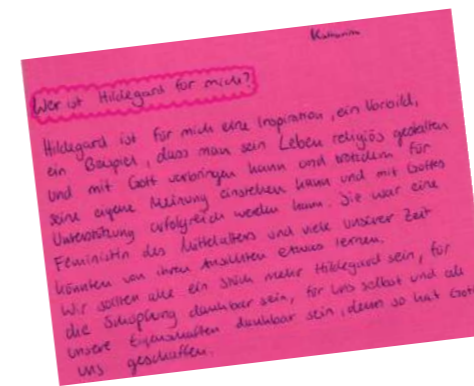 Katharina
Wer ist Hildegard für mich?
Hildegard ist für mich eine Inspiration, ein Vorbild,
ein Beispiel, dass man sein Leben religiös gestalten
und mit Gott verbringen kann und trotzdem für
seine eigene Meinung einstehen kann und mit Gottes
Unterstützung erfolgreich werden kann. Sie war eine
Feministin des Mittelalters und viele unserer Zeit
könnten von ihren Ansichten etwas lernen.
Wir sollten alle ein Stück mehr Hildegard sein, für
die Schöpfung dankbar sein, für uns selbst und all
unsere Eigenschaften dankbar sein, denn so hat Gott
uns geschaffen.